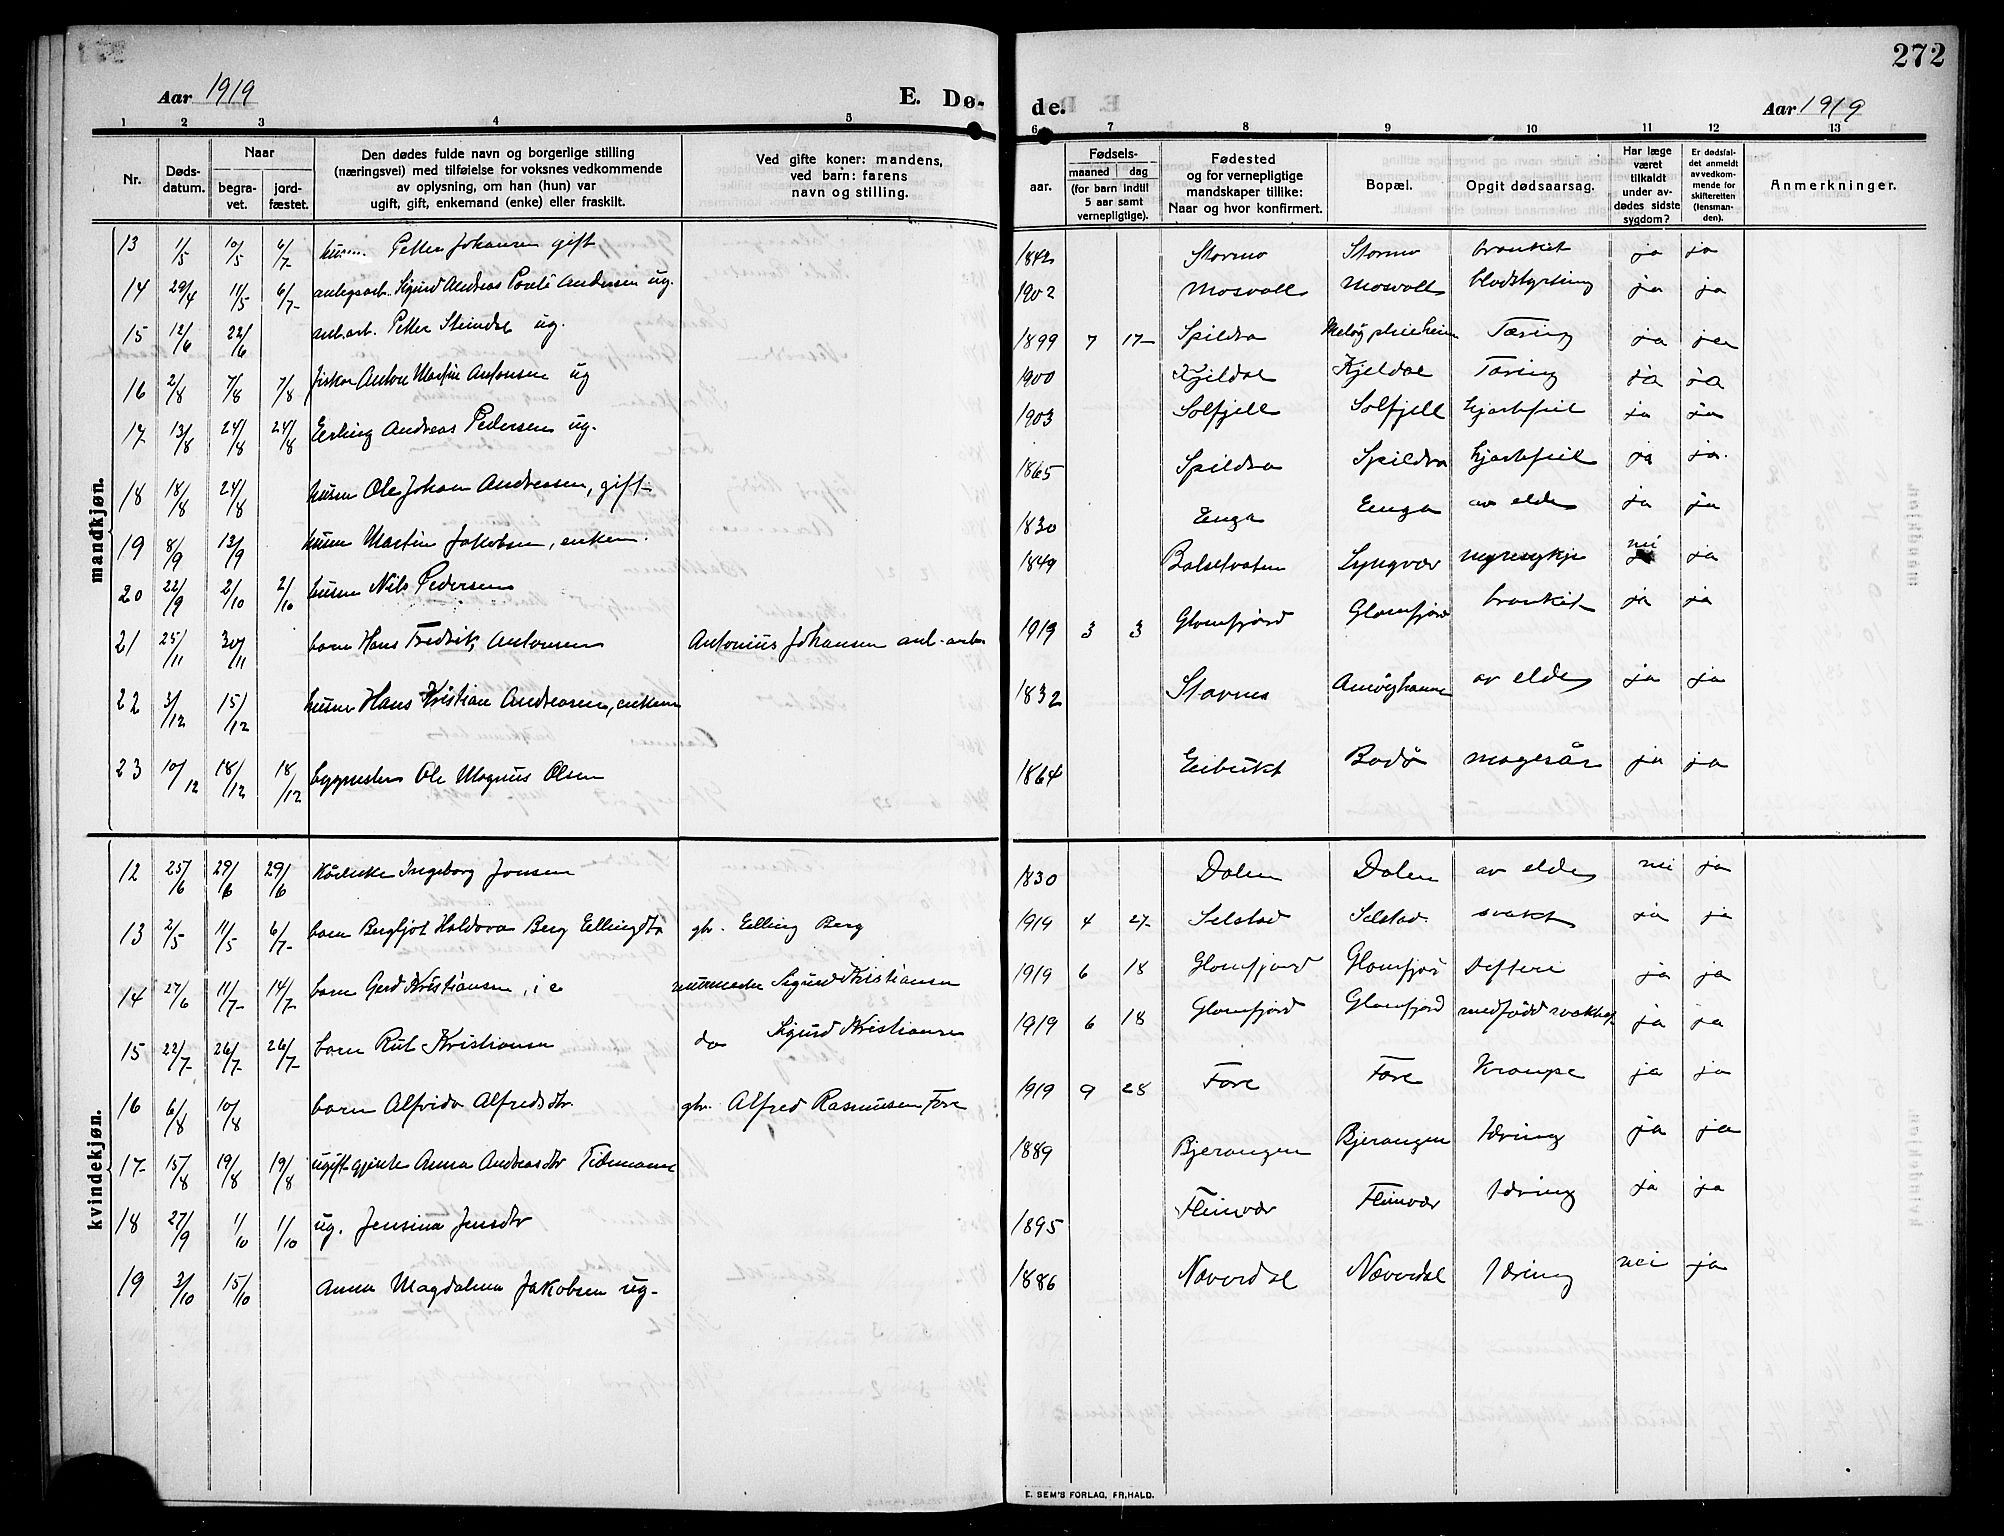 272
Aar 1919
E. Dø-
de.
Aar 1919
1 2 3 4 5 6 7 8 9 10 11 12 13
Nr.
Døds-
datum.
Naar
begra-
vet.
jord-
fæstet.
Den dødes fulde navn og borgerlige stilling
(næringsvei) med tilføielse for voksnes vedkommende
av oplysning, om han (hun) var
ugift, gift, enkemand (enke) eller fraskilt.
Ved gifte koner: mandens,
ved barn: farens
navn og stilling.
aar.
Fødsels-
maaned dag
(for barn indtil
5 aar samt
vernepligtige).
Fødested
og for vernepligtige
mandskaper tillike:
Naar og hvor konfirmert.
Bopæl.
Opgit dødsaarsag.
Har læge
været
tilkaldt
under av-
dødes sidste
sygdom?
Er dødsfal-
det anmeldt
av vedkom-
mende for
skifteretten
(lensman-
den).
Anmerkninger.
mandkjøn.
13 1/5 10/5 6/7 Petter Johansen gift 1842 Stormo Stormo bronkit ja ja
14 29/4 11/5 6/7 anlegsarb. Sigurd Andreas Andersen ug. 1902 Mosvoll Mosvoll blodstyrtning ja ja
15 12/6 22/6 anl.arb. Petter Steindal ug. 1899 7 17 Spildra Meløy pleieheim Tæring ja ja
16 2/8 7/8 7/8 fisker Anton Martin Antonsen ug 1900 Kjeldal Kjeldal Tæring ja ja
17 13/8 24/8 24/8 Erling Andreas Pedersen ug. 1903 Solfjell Solfjell hjertefeil ja ja
18 18/8 24/8 husm Ole Johan Andreassen, gift 1865 Spildra Spildra hjertefeil ja ja.
19 8/9 13/9 husm Martin Jakobsen, enkem. 1830 Enga Enga av elde ja ja
20 22/9 2/10 2/10 husm Nils Pedersen 1849 Bolsetvaten Lyngvær nyresykje nei ja
21 25/11 30/11 barn Hans Fredrik Antonsen Antonius Johansen anl.-arb. 1919 3 3 Glomfjord Glomfjord bronkit ja ja
22 3/12 15/12 husm Hans Kristian Andreasen, enkem 1832 Stavnes Amøyhamn av elde ja ja
23 10/12 18/12 18/12 byggmester Ole Magnus Olsen 1864 Eibukt Bodø magesår ja ja
kvindekjøn.
12 25/6 29/6 29/6 Kårenke Ingeborg Jensen 1830 Dalen Dalen av elde nei ja
13 2/5 11/5 6/7 barn Bergljot Haldora Berg Ellingdtr gbr. Elling Berg 1919 4 27 Selstad Selstad svakt ja ja
14 27/6 11/7 14/7 barn Gerd Kristiansen, i e murmester Sigurd Kristiansen 1919 6 18 Glomfjord Glomfjord Difteri ja ja
15 22/7 26/7 26/7 barn Rut Kristiansen do Sigurd Kristiansen 1919 6 18 Glomfjord Glomfjord medfødd svakhet ja ja
16 6/8 10/8 barn Alfrida Alfredsdtr. gbr. Alfred Rasmussen Fore 1919 9 28 Fore Fore Krampe ja ja
17 15/8 19/8 19/8 ugift gjente Anna Andreasdtr Tidemann 1889 Bjerangen Bjerangen Tæring ja ja
18 27/9 1/10 1/10 ug. Jensina Jensdtr 1895 Fleinvær Fleinvær Tæring ja ja
19 3/10 15/10 Anna Magdalena Jakobsen ug. 1886 Næverdal Næverdal Tæring nei ja
E. SEM'S FORLAG, FR.HALD.